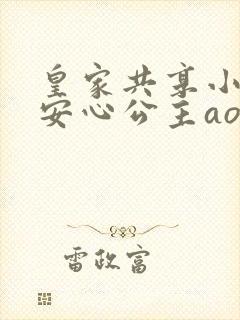 皇家共享小
安心公主ao
雷政富